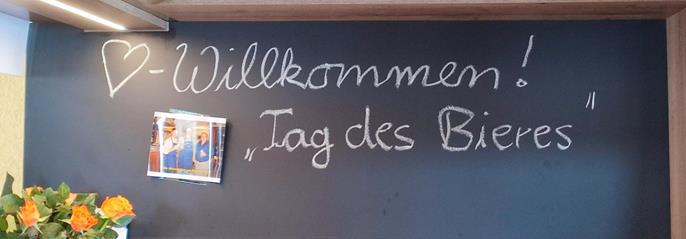 ♡-Willkommen!
„Tag des Bieres"